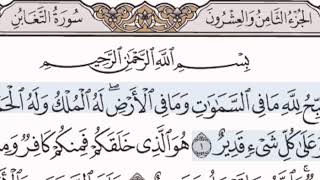 الجزء الثامن والعشرون سورة التغابن
بِسْمِ ٱللَّهِ ٱلرَّحْمَٰنِ ٱلرَّحِيمِ
بِّحُ لِلَّهِ مَا فِى ٱلسَّمَٰوَٰتِ وَمَا فِى ٱلْأَرْضِ ۖ لَهُ ٱلْمُلْكُ وَلَهُ ٱلْحَمْ
عَلَىٰ كُلِّ شَىْءٍ قَدِيرٌ ١ هُوَ ٱلَّذِى خَلَقَكُمْ فَمِنكُمْ كَافِرٌ وَمِ